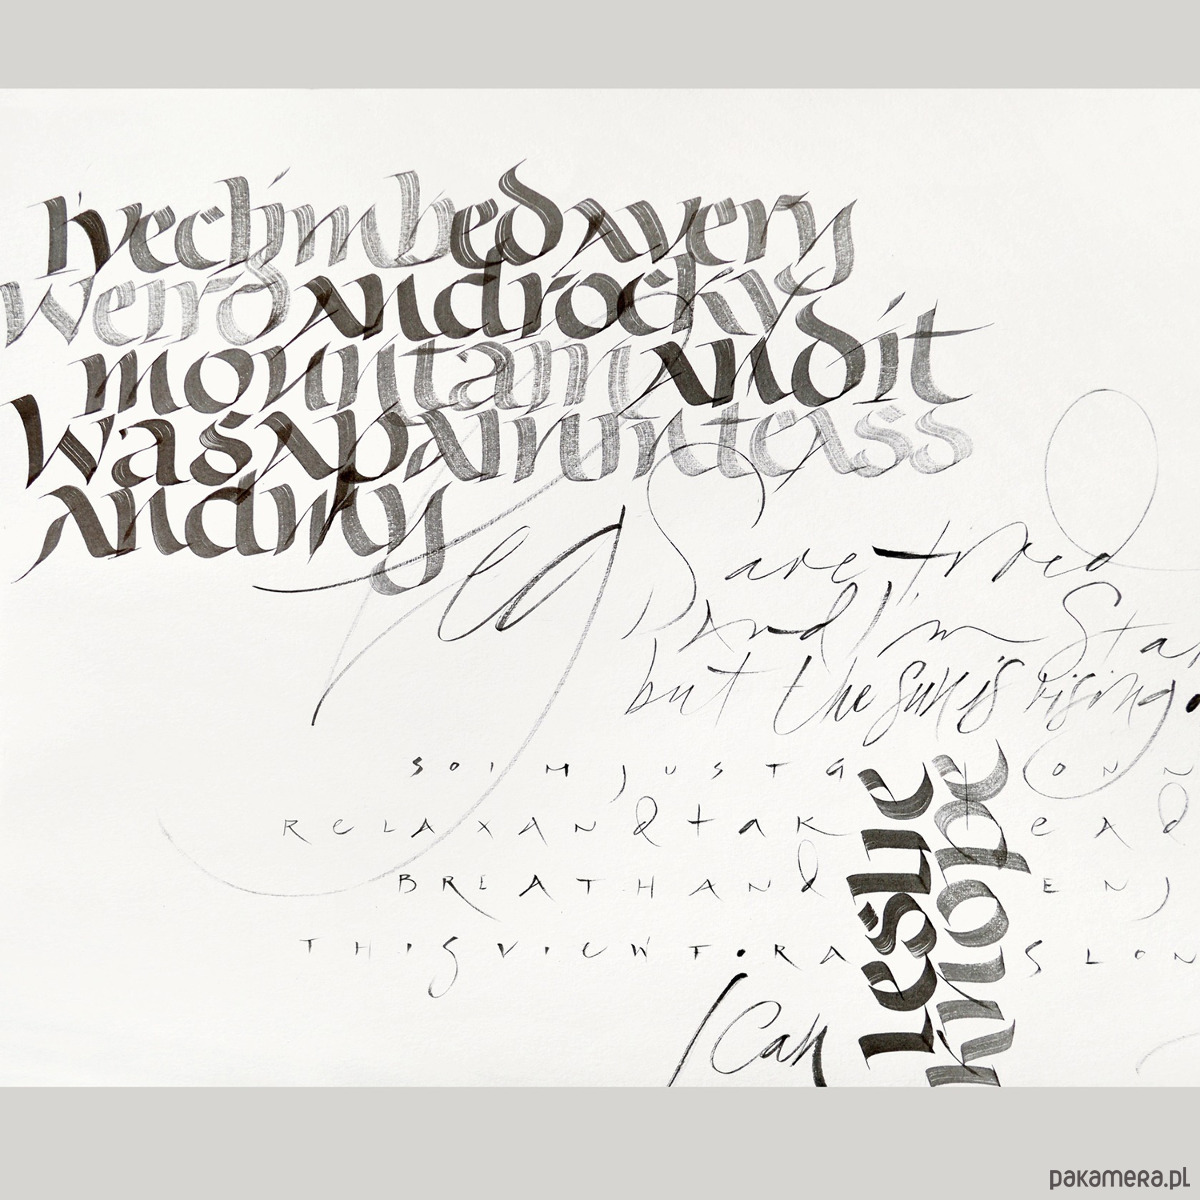 I'veclimbedavery
weirdandrocky
mountainandit
wasapainintheass
andmy
legs are tired
and I'm Star
but the sun is rising.
SOIMJUSTG ONN
RELAXANDtAK eAD
BREATHAND ENJ
THISVIEWFORA SLON
I can
Leslie
knope
pakamera.pl